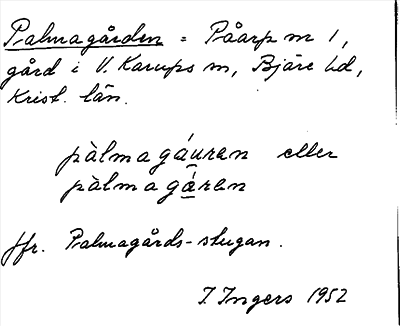 Palmagården = Påarp nr 1,
gård i V. Karups sn, Bjäre hd,
Krist. län.
pàlmagáuren eller
pàlmagǻren
Jfr. Palmagårds-stugan.
I. Ingers 1952